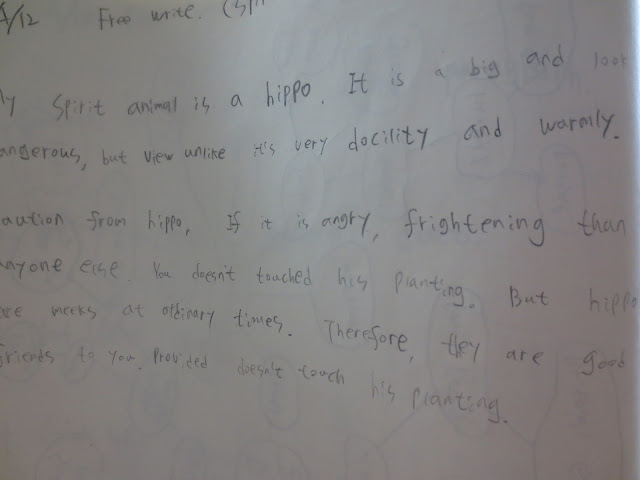 4/12 Free write. (Spi
My spirit animal is a hippo. It is a big and look
angerous, but view unlike it's very docility and warmly.
aution from hippo, If it is angry, frightening than
anyone else. You doesn't touched his planting. But hippo
are meeks at ordinary times. Therefore, they are good
friends to you. Provided doesn't touch his planting.